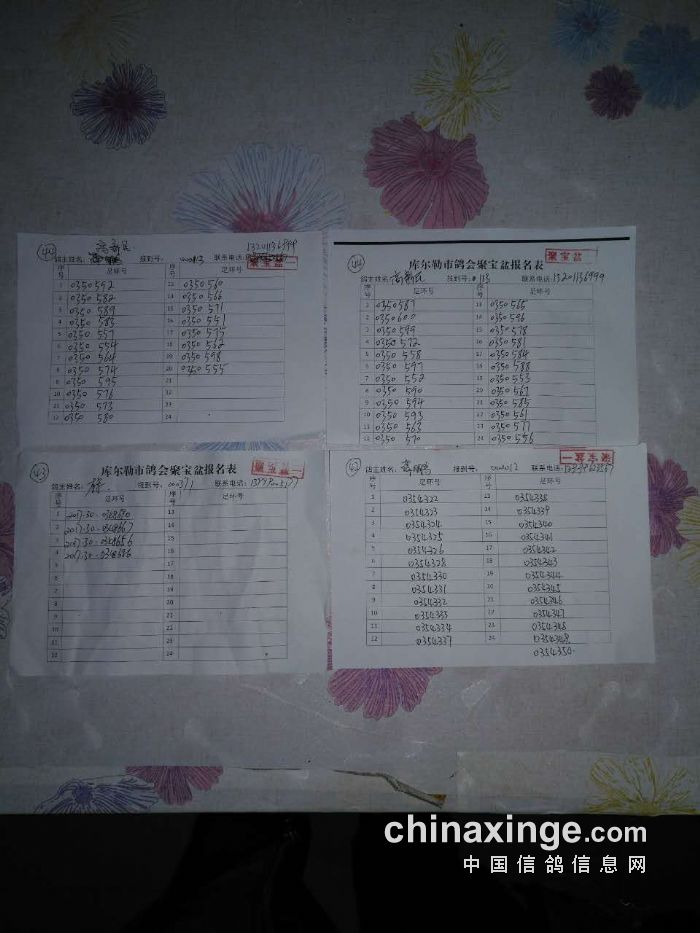 44
高新民
13201136999
鸽主姓名:
报到号: 000113
联系电话:
聚宝盆
序号 足环号 序号 足环号
1 0350592 13 0350560
2 0350582 14 0350566
3 0350589 15 0350571
4 0350583 16 0350551
5 0350557 17 0350575
6 0350554 18 0350562
7 0350564 19 0350598
8 0350574 20 0350555
9 0350595 21
10 0350576 22
11 0350573 23
12 0350580 24
44
聚宝盆
库尔勒市鸽会聚宝盆报名表
鸽主姓名: 高新民 报到号: 113 联系电话: 13201136999
序号 足环号 序号 足环号
1 0350587 13 0350565
2 0350600 14 0350596
3 0350599 15 0350578
4 0350572 16 0350581
5 0350558 17 0350584
6 0350597 18 0350588
7 0350552 19 0350553
8 0350590 20 0350567
9 0350594 21 0350585
10 0350593 22 0350561
11 0350563 23 0350577
12 0350570 24 0350556
43
库尔勒市鸽会聚宝盆报名表
鸽主姓名: 报到号: 联系电话:
序号 足环号 序号 足环号
1 13
2 2017-30-0348667 14
3 2017-30-0348656 15
4 2017-30-0348686 16
5 17
6 18
7 19
8 20
9 21
10 22
11 23
12 24
42
鸽主姓名: 报到号: 联系电话:
序号 足环号 序号 足环号
1 0354322 13 0354338
2 0354323 14 0354339
3 0354324 15 0354340
4 0354325 16 0354341
5 0354326 17 0354342
6 0354328 18 0354343
7 0354330 19 0354344
8 0354331 20 0354345
9 0354332 21 0354346
10 0354333 22 0354347
11 0354334 23 0354348
12 0354337 24 0354349
0354350
chinaxinge.com
中国信鸽信息网